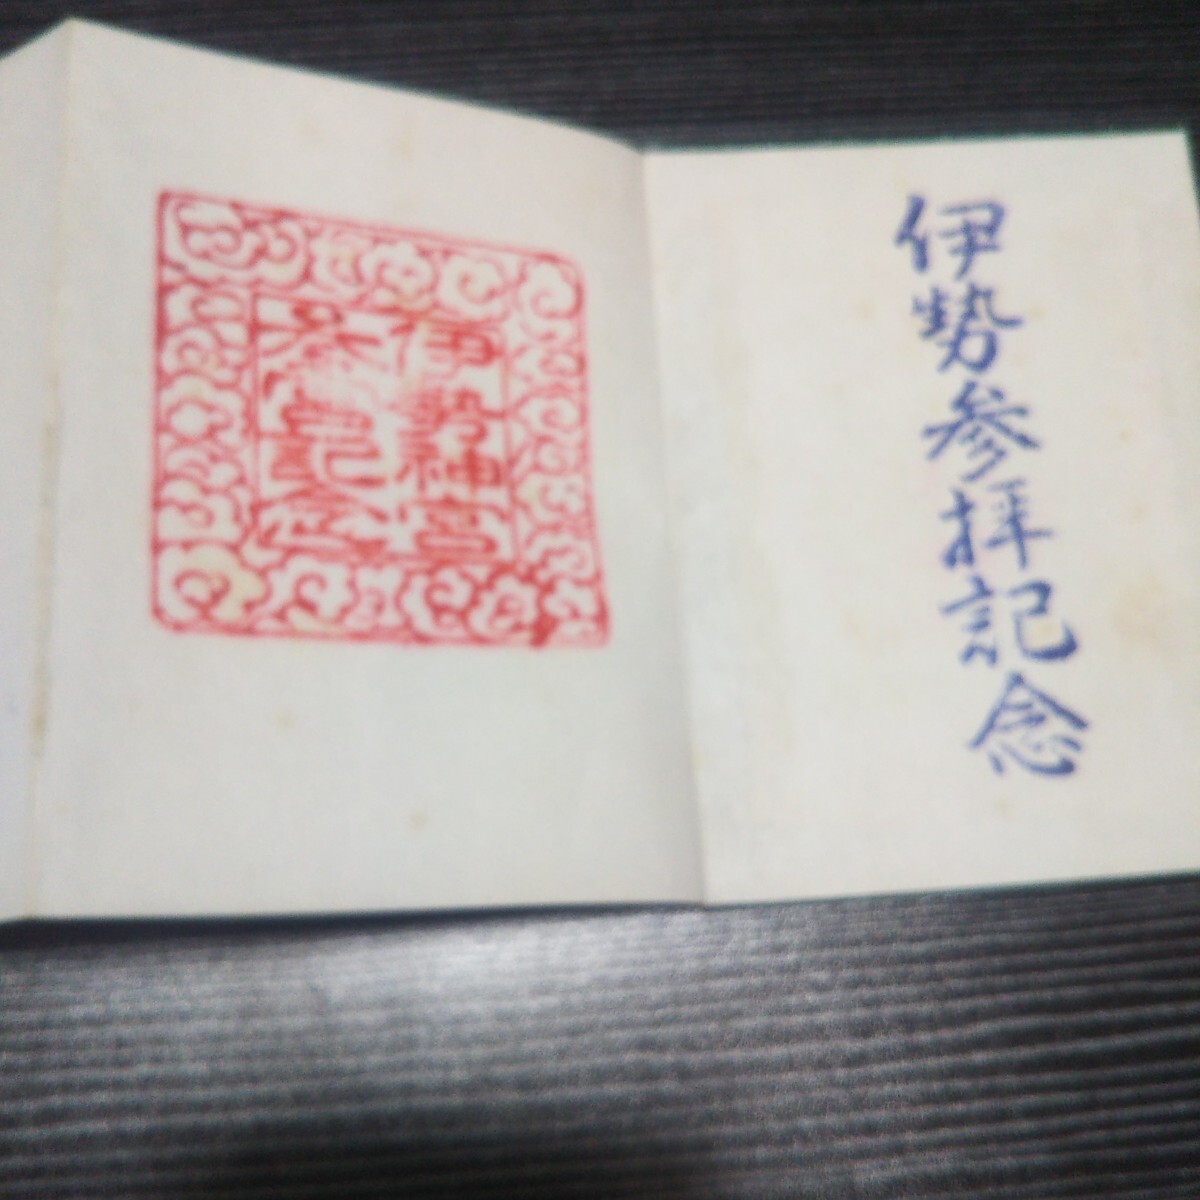 伊勢参拝記念
伊勢神宮
参宮記念